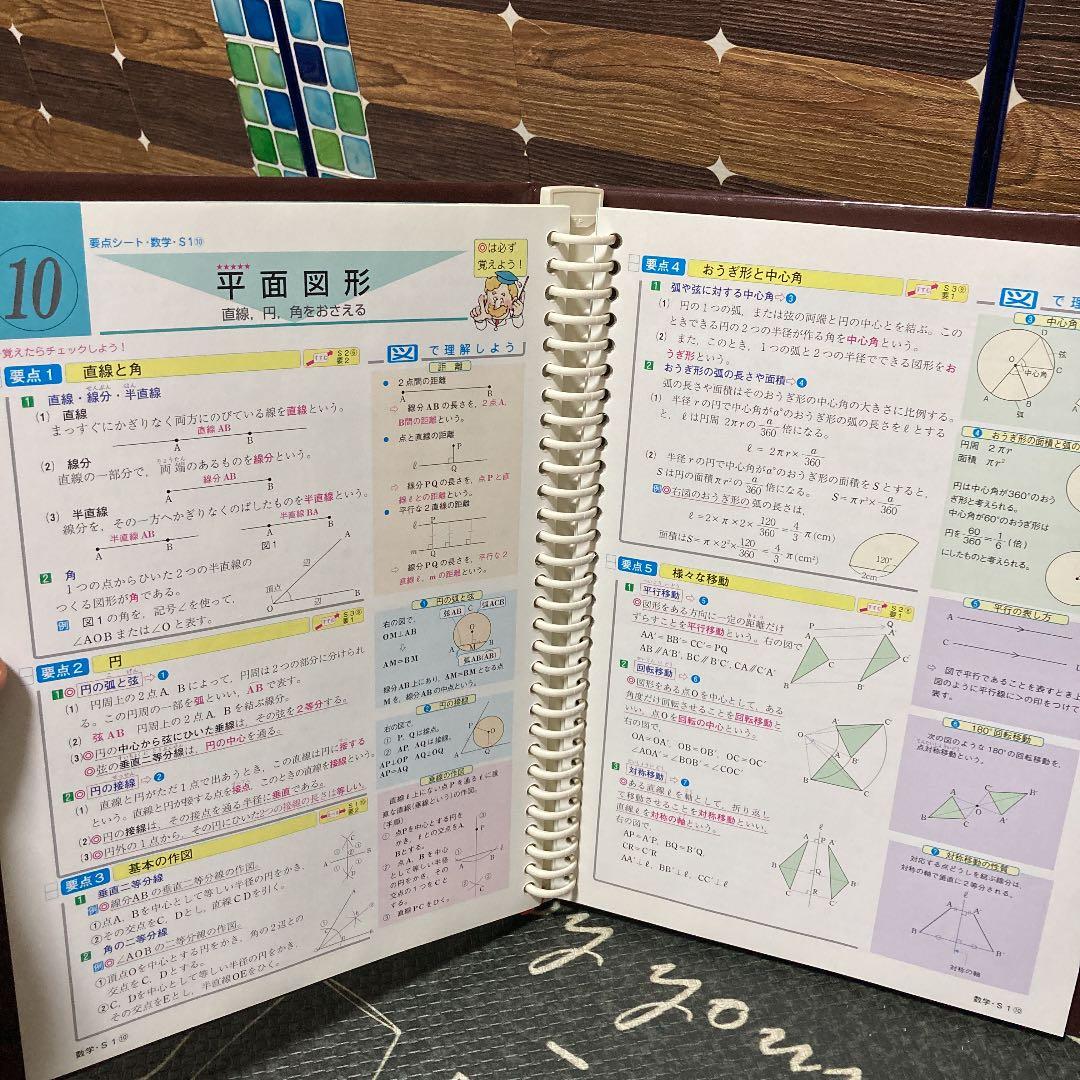 要点シート・数学・S1⑩
10
★★★★★
平面図形
直線，円，角をおさえる
◎は必ず
覚えよう！
覚えたらチェックしよう！
要点1 直線と角
TTC S2⑨ 要2
1 直線・線分・半直線
(1) 直線
まっすぐにかぎりなく両方にのびている線を直線という。
直線AB
A B
(2) 線分
直線の一部分で，両端のあるものを線分という。
線分AB
A B
(3) 半直線
線分を，その一方へかぎりなくのばしたものを半直線という。
半直線AB
A B
半直線BA
A B
図1
2 角
1つの点からひいた2つの半直線の
つくる図形が角である。
例 図1の角を，記号∠を使って，
∠AOBまたは∠Oと表す。
A
辺
頂点
O 辺 B
要点2 円
1 ◎円の弧と弦⇨❶
(1) 円周上の2点A，Bによって，円周は2つの部分に分けられ
る。この円周の一部を弧といい，ABで表す。
(2) 弦AB 円周上の2点A，Bを結ぶ線分。
(3) ◎円の中心から弦にひいた垂線は，その弦を2等分する。
◎弦の垂直二等分線は，円の中心を通る。
2 ◎円の接線⇨❷
(1) 直線と円がただ1点で出あうとき，この直線は円に接する
という。直線と円が接する点を接点，このときの直線を接線という。
(2) ◎円の接線は，その接点を通る半径に垂直である。
(3) ◎円外の1点から，その円にひいた2つの接線の長さは等しい。
要点3 基本の作図
1 垂直二等分線
例 ◎線分ABの垂直二等分線の作図。
①点A，Bを中心として等しい半径の円をかき，
②その交点をC，Dとし，直線CDを引く。
2 角の二等分線
例 ◎∠AOBの二等分線の作図。
①頂点Oを中心とする円をかき，角の2辺との
交点をC，Dとする。
②C，Dを中心として等しい半径の円をかき，
その交点をEとし，半直線OEをひく。
数学・S1⑩
図で理解しよう
距離
● 2点間の距離
A B
⇨ 線分ABの長さを，2点A，
B間の距離という。
● 点と直線の距離
P
ℓ Q
⇨ 線分PQの長さを，点Pと直
線ℓとの距離という。
● 平行な2直線の距離
ℓ P
m Q
⇨ 線分PQの長さを，平行な2
直線ℓ，mの距離という。
❶ 円の弧と弦
右の図で，
OM⊥AB
⇩
AM=BM
弦AB C 弧ACB
弧AB(AB)
線分AB上にあり，AM=BMとなる点
Mを，線分ABの中点という。
❷ 円の接線
右の図で，
① P，Qは接点。
② AP，AQは接線。
AP⊥OP
AP=AQ
垂線の作図
直線ℓ上にない点Pを通るℓに垂
直な直線(垂線という)の作図。
(手順)
① 点Pを中心とする円を
かき，ℓとの交点をA，
Bとする。
② 点A，Bを中心
として等しい半径
の円をかき，その
交点の1つをCと
する。
③ 直線PCをひく。
要点4 おうぎ形と中心角
TTC S3⑨ 要1
1 弧や弦に対する中心角⇨❸
(1) 円の1つの弧，または弦の両端と円の中心とを結ぶ。この
ときできる円の2つの半径が作る角を中心角という。
(2) また，このとき，1つの弧と2つの半径でできる図形をお
うぎ形という。
2 おうぎ形の弧の長さや面積⇨❹
弧の長さや面積はそのおうぎ形の中心角の大きさに比例する。
(1) 半径rの円で中心角がa°のおうぎ形の弧の長さをℓとする
と，ℓは円周2πrのa/360倍になる。
ℓ=2πr×a/360
(2) 半径rの円で中心角がa°のおうぎ形の面積をSとすると，
Sは円の面積πr²のa/360倍になる。 S=πr²×a/360
例 ◎右図のおうぎ形の弧の長さは，
ℓ=2×π×2×120/360=4/3π(cm)
面積はS=π×2²×120/360=4/3π(cm²)
120°
2cm
要点5 様々な移動
1 平行移動⇨❺
◎図形をある方向に一定の距離だけ
ずらすことを平行移動という。右の図で
AA'=BB'=CC'=PQ
AB∥A'B'，BC∥B'C'，CA∥C'A'
2 回転移動⇨❻
◎図形をある点Oを中心として，ある
角度だけ回転させることを回転移動と
いい，点Oを回転の中心という。
右の図で，
OA=OA'，OB=OB'，OC=OC'
∠AOA'=∠BOB'=∠COC'
3 対称移動⇨❼
◎ある直線ℓを軸として，折り返し
て移動させることを対称移動といい，
直線ℓを対称の軸という。
右の図で，
AP=A'P，BQ=B'Q，
CR=C'R
AA'⊥ℓ，BB'⊥ℓ，CC'⊥ℓ
図で理
❸ 中心角
弦
O
中心角
弧
❹ おうぎ形の面積と弧の
円周 2πr
面積 πr²
円は中心角が360°のおう
ぎ形と考えられる。
中心角が60°のおうぎ形は
円を60/360=1/6(倍)
にしたものと考えられる。
❺ 平行の表し方
A
C
⇨ 図で平行であることを表すとき上
図のように平行線に>の印をつけて
表す。
❻ 180°回転移動
次の図のような180°の回転移動を，
点対称移動という。
❼ 対称移動の性質
対応する点どうしを結ぶ線分は，
対称の軸で垂直に2等分される。
対称の軸
数学・S1⑩
you